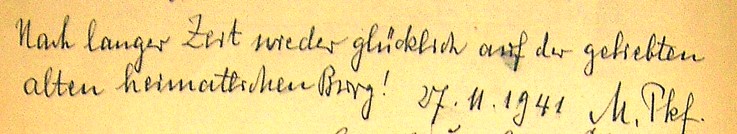 Nach langer Zeit wieder glücklich auf der geliebten
alten heimatlichen Burg! 27.11.1941 M. Pkf.